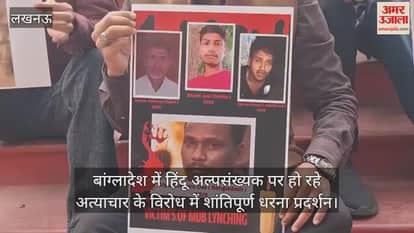 लखनऊ
अमर उजाला
amarujala.com
VICTIM'S OF MOB LYNCHING
बांग्लादेश में हिंदू अल्पसंख्यक पर हो रहे
अत्याचार के विरोध में शांतिपूर्ण धरना प्रदर्शन।